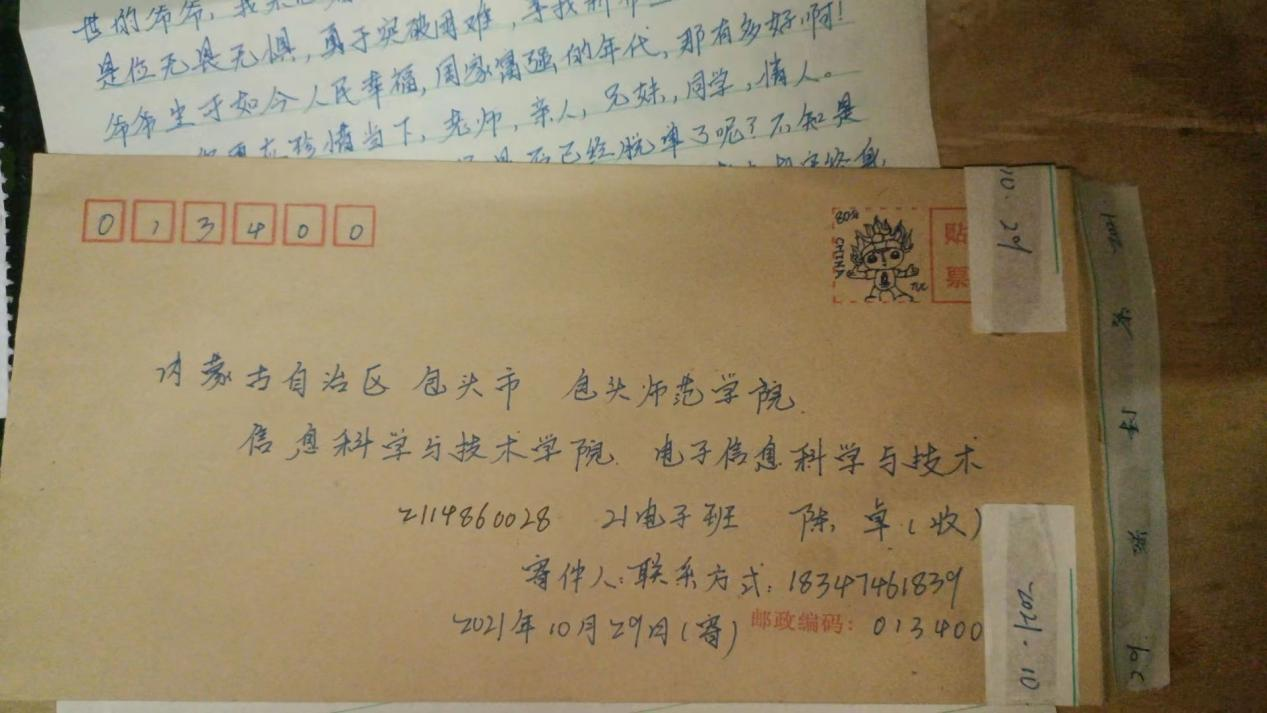 是位无畏无惧,勇于突破困难,寻找新
爷爷生于如今人民幸福,国家富强的年代,那有多好啊!
珍惜当下,老师,亲人,兄妹,同学,情人。
是否已经脱单了呢?不知是
013400
80分
CHINA
贴
票
10.29
内蒙古自治区 包头市 包头师范学院
信息科学与技术学院 电子信息科学与技术
2114860028 21电子班 陈卓(收)
寄件人:联系方式:18347461839
2021年10月29日(寄) 邮政编码:013400
2021.10